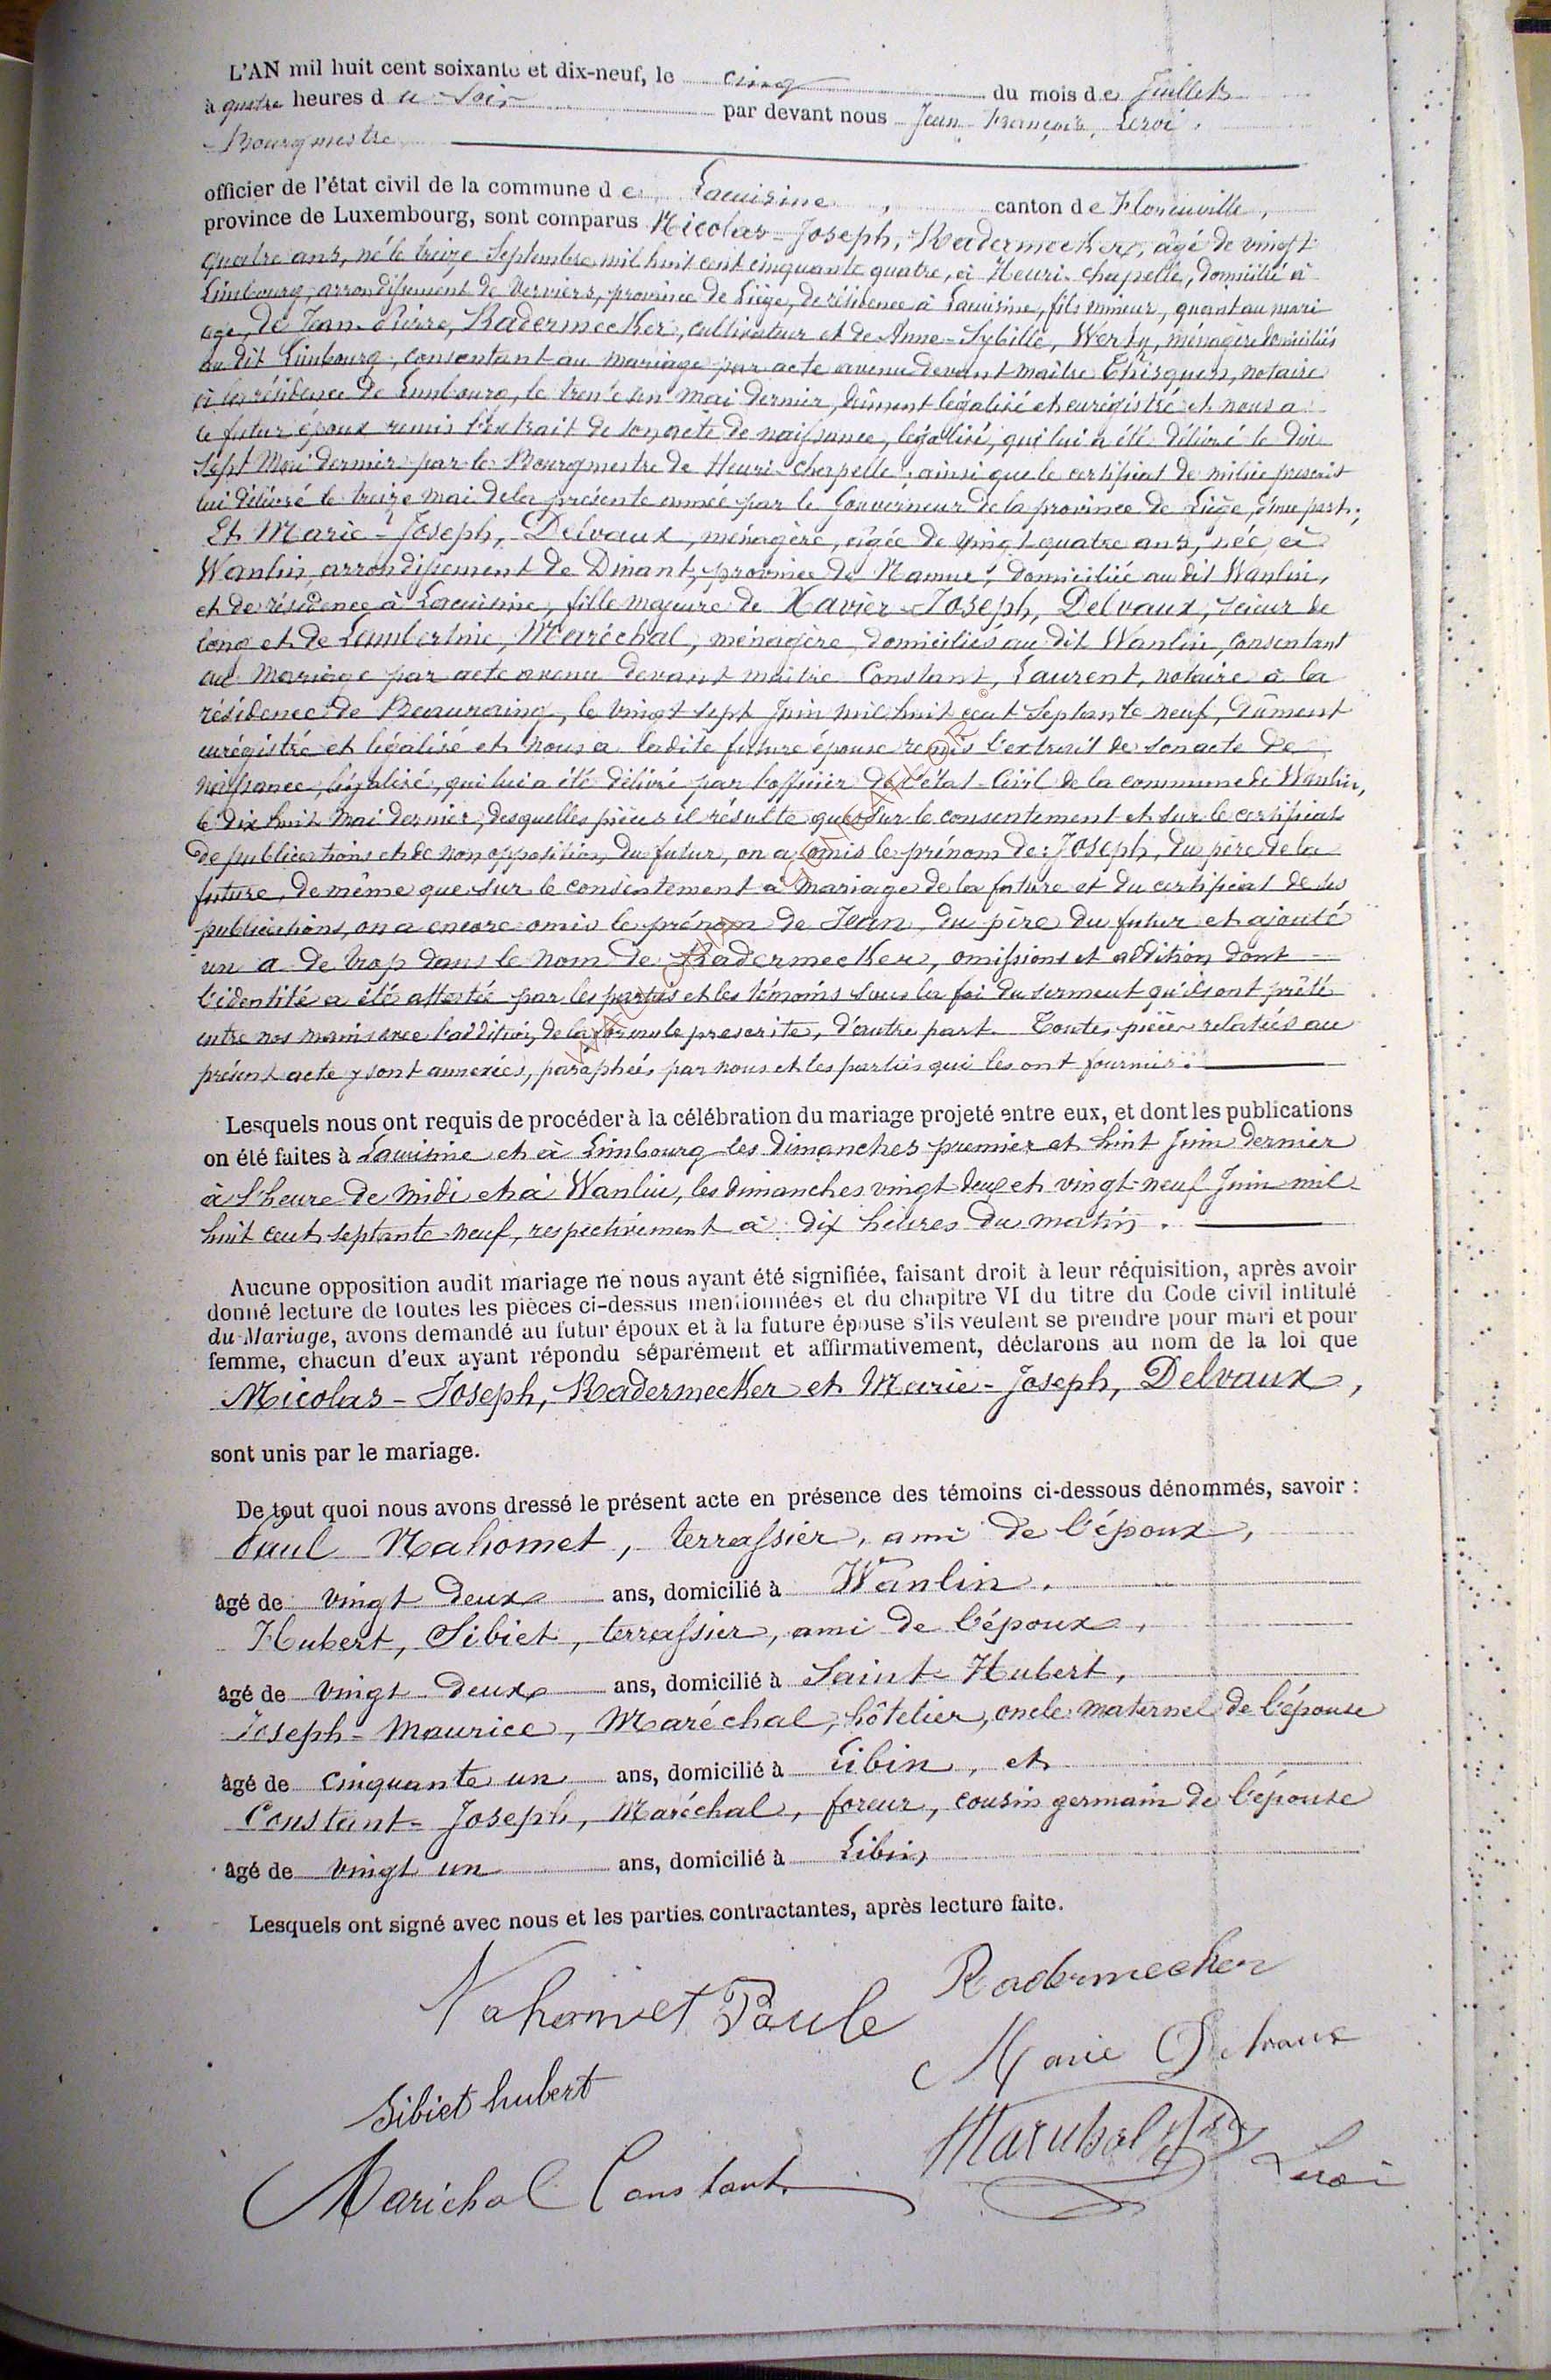 L'AN mil huit cent soixante et dix-neuf, le cinq du mois de Juillet
à quatre heures du soir par devant nous Jean François, Leroi,
Bourgmestre
officier de l'état civil de la commune de Lacuisine, canton de Florenville,
province de Luxembourg, sont comparus Nicolas-Joseph, Radermecker, âgé de vingt
quatre ans, né le treize Septembre mil huit cent cinquante quatre, à Henri-chapelle, domicilié à
Limbourg, arrondissement de Verviers, province de Liège, de résidence à Lacuisine, fils mineur, quant au mari
age, de Jean-Pierre, Radermecker, cultivateur et de Anne-Sybille, Werty, ménagère domiciliés
au dit Limbourg, consentant au mariage par acte avenu devant maître Thisquen, notaire
à la résidence de Limbourg, le trente un mai dernier, dûment légalisé et enregistré et nous a
le futur époux remis l'extrait de son acte de naissance, légalisé, qui lui a été délivré le dix
sept Mai dernier par le Bourgmestre de Henri-chapelle, ainsi que le certificat de milice prescrit
lui délivré le treize mai de la présente année par le Gouverneur de la province de Liège, d'une part;
Et Marie-Joseph, Delvaux, ménagère, âgée de vingt quatre ans, née à
Wanlin, arrondissement de Dinant, province de Namur, domiciliée au dit Wanlin,
et de résidence à Lacuisine, fille majeure de Xavier-Joseph, Delvaux, scieur de
long et de Lambertine, Maréchal, ménagère, domiciliés au dit Wanlin, consentant
au mariage par acte avenu devant maître Constant, Laurent, notaire à la
résidence de Beauraing, le vingt sept Juin mil huit cent septante neuf, dûment
enrégistré et légalisé et nous a ladite future épouse remis l'extrait de son acte de
naissance, légalisé, qui lui a été délivré par l'officier de l'état-Civil de la commune de Wanlin,
le dix huit Mai dernier, desquelles pièces il résulte que sur le consentement et sur le certificat
de publications et de non opposition, du futur, on a omis le prénom de: Joseph, du père de la
future, de même que sur le consentement à mariage de la future et du certificat de ses
publications, on a encore omis le prénom de Jean, du père du futur et ajouté
un a de trop dans le nom de Radermecker, omissions et addition dont
l'identité a été attestée par les parties et les témoins sous la foi du serment qu'ils ont prêté
entre nos mains avec l'addition de la formule prescrite, d'autre part. Toutes pièces relatées au
présent acte y sont annexées, paraphées par nous et les parties qui les ont fournies.
Lesquels nous ont requis de procéder à la célébration du mariage projeté entre eux, et dont les publications
on élé faites à Lacuisine et à Limbourg les dimanches premier et huit Juin dernier
à l'heure de midi et à Wanlin, les dimanches vingt deux et vingt-neuf Juin mil
huit cent septante neuf, respectivement à dix heures du matin.
Aucune opposition audit mariage ne nous ayant été signifiée, faisant droit à leur réquisition, après avoir
donné lecture de toutes les pièces ci-dessus mentionnées et du chapitre VI du titre du Code civil intitulé
du Mariage, avons demandé au futur époux et à la future épouse s'ils veulent se prendre pour mari et pour
femme, chacun d'eux ayant répondu séparément et affirmativement, déclarons au nom de la loi que
Nicolas-Joseph, Radermecker et Marie-Joseph, Delvaux,
sont unis par le mariage.
De tout quoi nous avons dressé le présent acte en présence des témoins ci-dessous dénommés, savoir :
Paul Nahomet, terrassier, ami de l'époux,
âgé de vingt deux ans, domicilié à Wanlin.
Hubert, Sibiet, terrassier, ami de l'époux,
âgé de vingt deux ans, domicilié à Saint-Hubert,
Joseph-Maurice, Maréchal, hôtelier, oncle maternel de l'épouse
âgé de cinquante un ans, domicilié à Libin, et
Constant-Joseph, Maréchal, foreur, cousin germain de l'épouse
âgé de vingt un ans, domicilié à Libin,
Lesquels ont signé avec nous et les parties contractantes, après lecture faite.
Nahomet Paule Radermecker
Marie Delvaux
Sibiet hubert
Maréchal
Leroi
Maréchal Constant